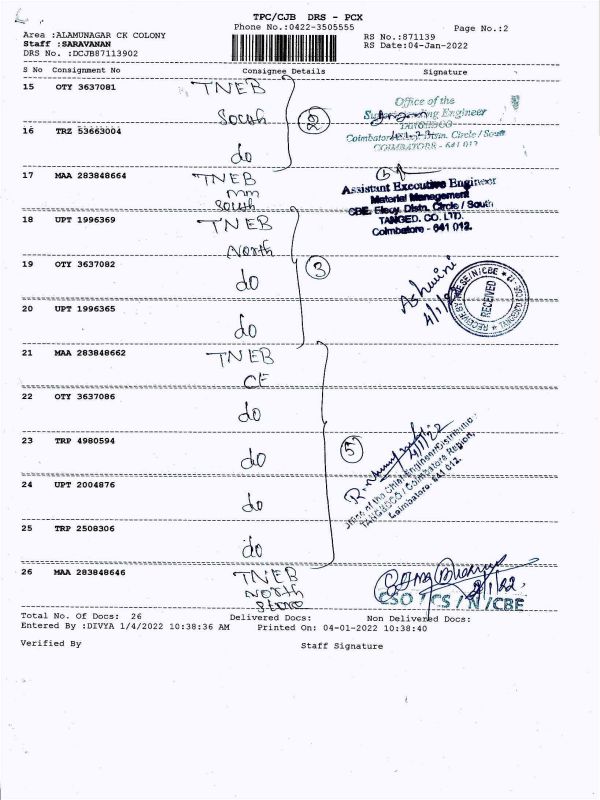 TPC/CJB DRS - PCX
Phone No.:0422-3505555
Page No.:2
Area :ALAMUNAGAR CK COLONY
RS No.:871139
Staff :SARAVANAN
RS Date:04-Jan-2022
DRS No. :DCJB87113902
S No Consignment No Consignee Details Signature
15 OTY 3637081 TNEB
South
2
Office of the
Superintending Engineer
TANGEDCO
Coimbatore Distn. Circle / South
COIMBATORE - 641 012
16 TRZ 53663004
do
17 MAA 283848664 TNEB
mm
South
Assistant Executive Engineer
Material Management
CBE. Elecy. Distn. Circle / South
TANGED. CO. LTD.
Coimbatore - 641 012.
18 UPT 1996369 TNEB
North
19 OTY 3637082 do
3
Ashwini
4/1/22
RECEIVED
20 UPT 1996365 do
21 MAA 283848662 TNEB
CE
22 OTY 3637086 do
23 TRP 4980594 do
5
4/1/22
Office of the Chief Engineer/Distribution
TANGEDCO / Coimbatore Region,
Coimbatore- 641 012.
24 UPT 2004876 do
25 TRP 2508306 do
26 MAA 283848646 TNEB
North
Store
4/1/22.
CSO / CS / N /CBE
Total No. Of Docs: 26 Delivered Docs: Non Delivered Docs:
Entered By :DIVYA 1/4/2022 10:38:36 AM Printed On: 04-01-2022 10:38:40
Verified By Staff Signature